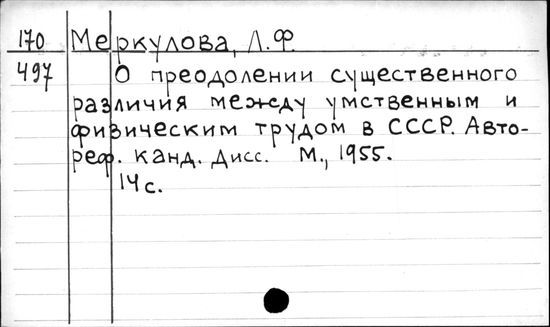 170 Меркулова, Л.Ф.
497 О преодолении существенного
различия между умственным и
физическим трудом в СССР. Авто-
реф. канд. дисс. М., 1955.
14 с.